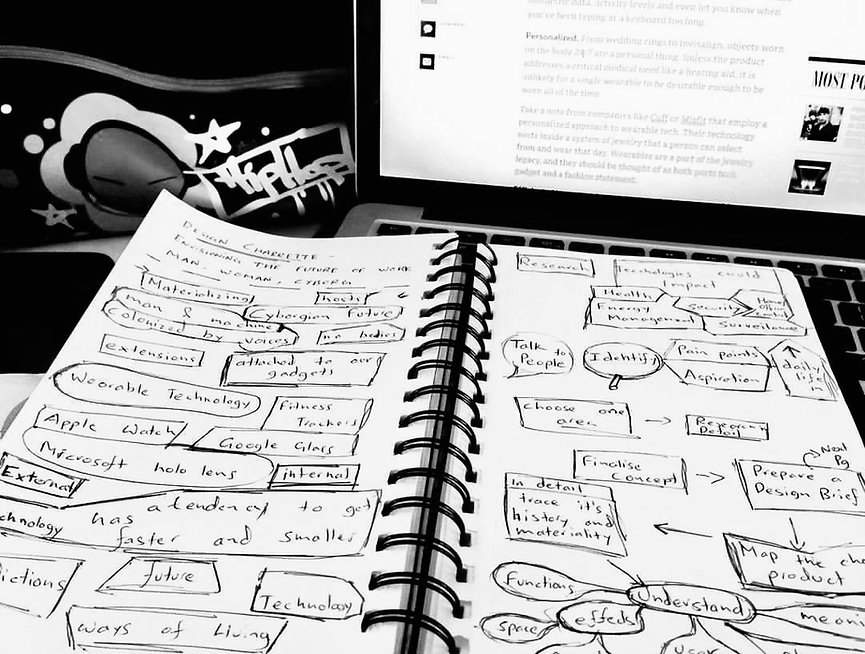 HipHop
biometric data, activity levels and even let you know when
you've been typing at a keyboard too long.
Personalized. From wedding rings to Invisalign, objects worn
on the body 24/7 are a personal thing. Unless the product
addresses a critical medical need like a hearing aid, it is
unlikely for a single wearable to be desirable enough to be
worn all of the time.
Take a note from companies like Cuff or Misfit that employ a
personalized approach to wearable tech. Their technology
nests inside a system of jewelry that a person can select
from and wear that day. Wearables are a part of the jewelry
legacy, and they should be thought of as both parts tech
gadget and a fashion statement.
MOST PO
DESIGN CHARRETTE -
ENVISIONING THE FUTURE OF WORK
MAN, WOMAN, CYBORG
Materializing
hosts
man & machine
Cyborgian Future
colonized by voices
no bodies
extensions
attached to our
gadgets
Wearable Technology
Fitness
Trackers
Apple Watch
Google Glass
Microsoft holo lens
internal
External
chnology has a tendency to get
faster and smaller
ictions
future
Technology
ways of Living
Research
Technologies could
impact
Health
Security
Energy
Management
Surveillance
Talk to
People
Identify
Pain points
Aspiration
daily
life
Choose one
area
Research
Detail
Finalise
Concept
Next
Pg
Prepare a
Design Brief
In detail
trace it's
history and
materiality
Map the
product
Functions
Understand
Space
effects
User